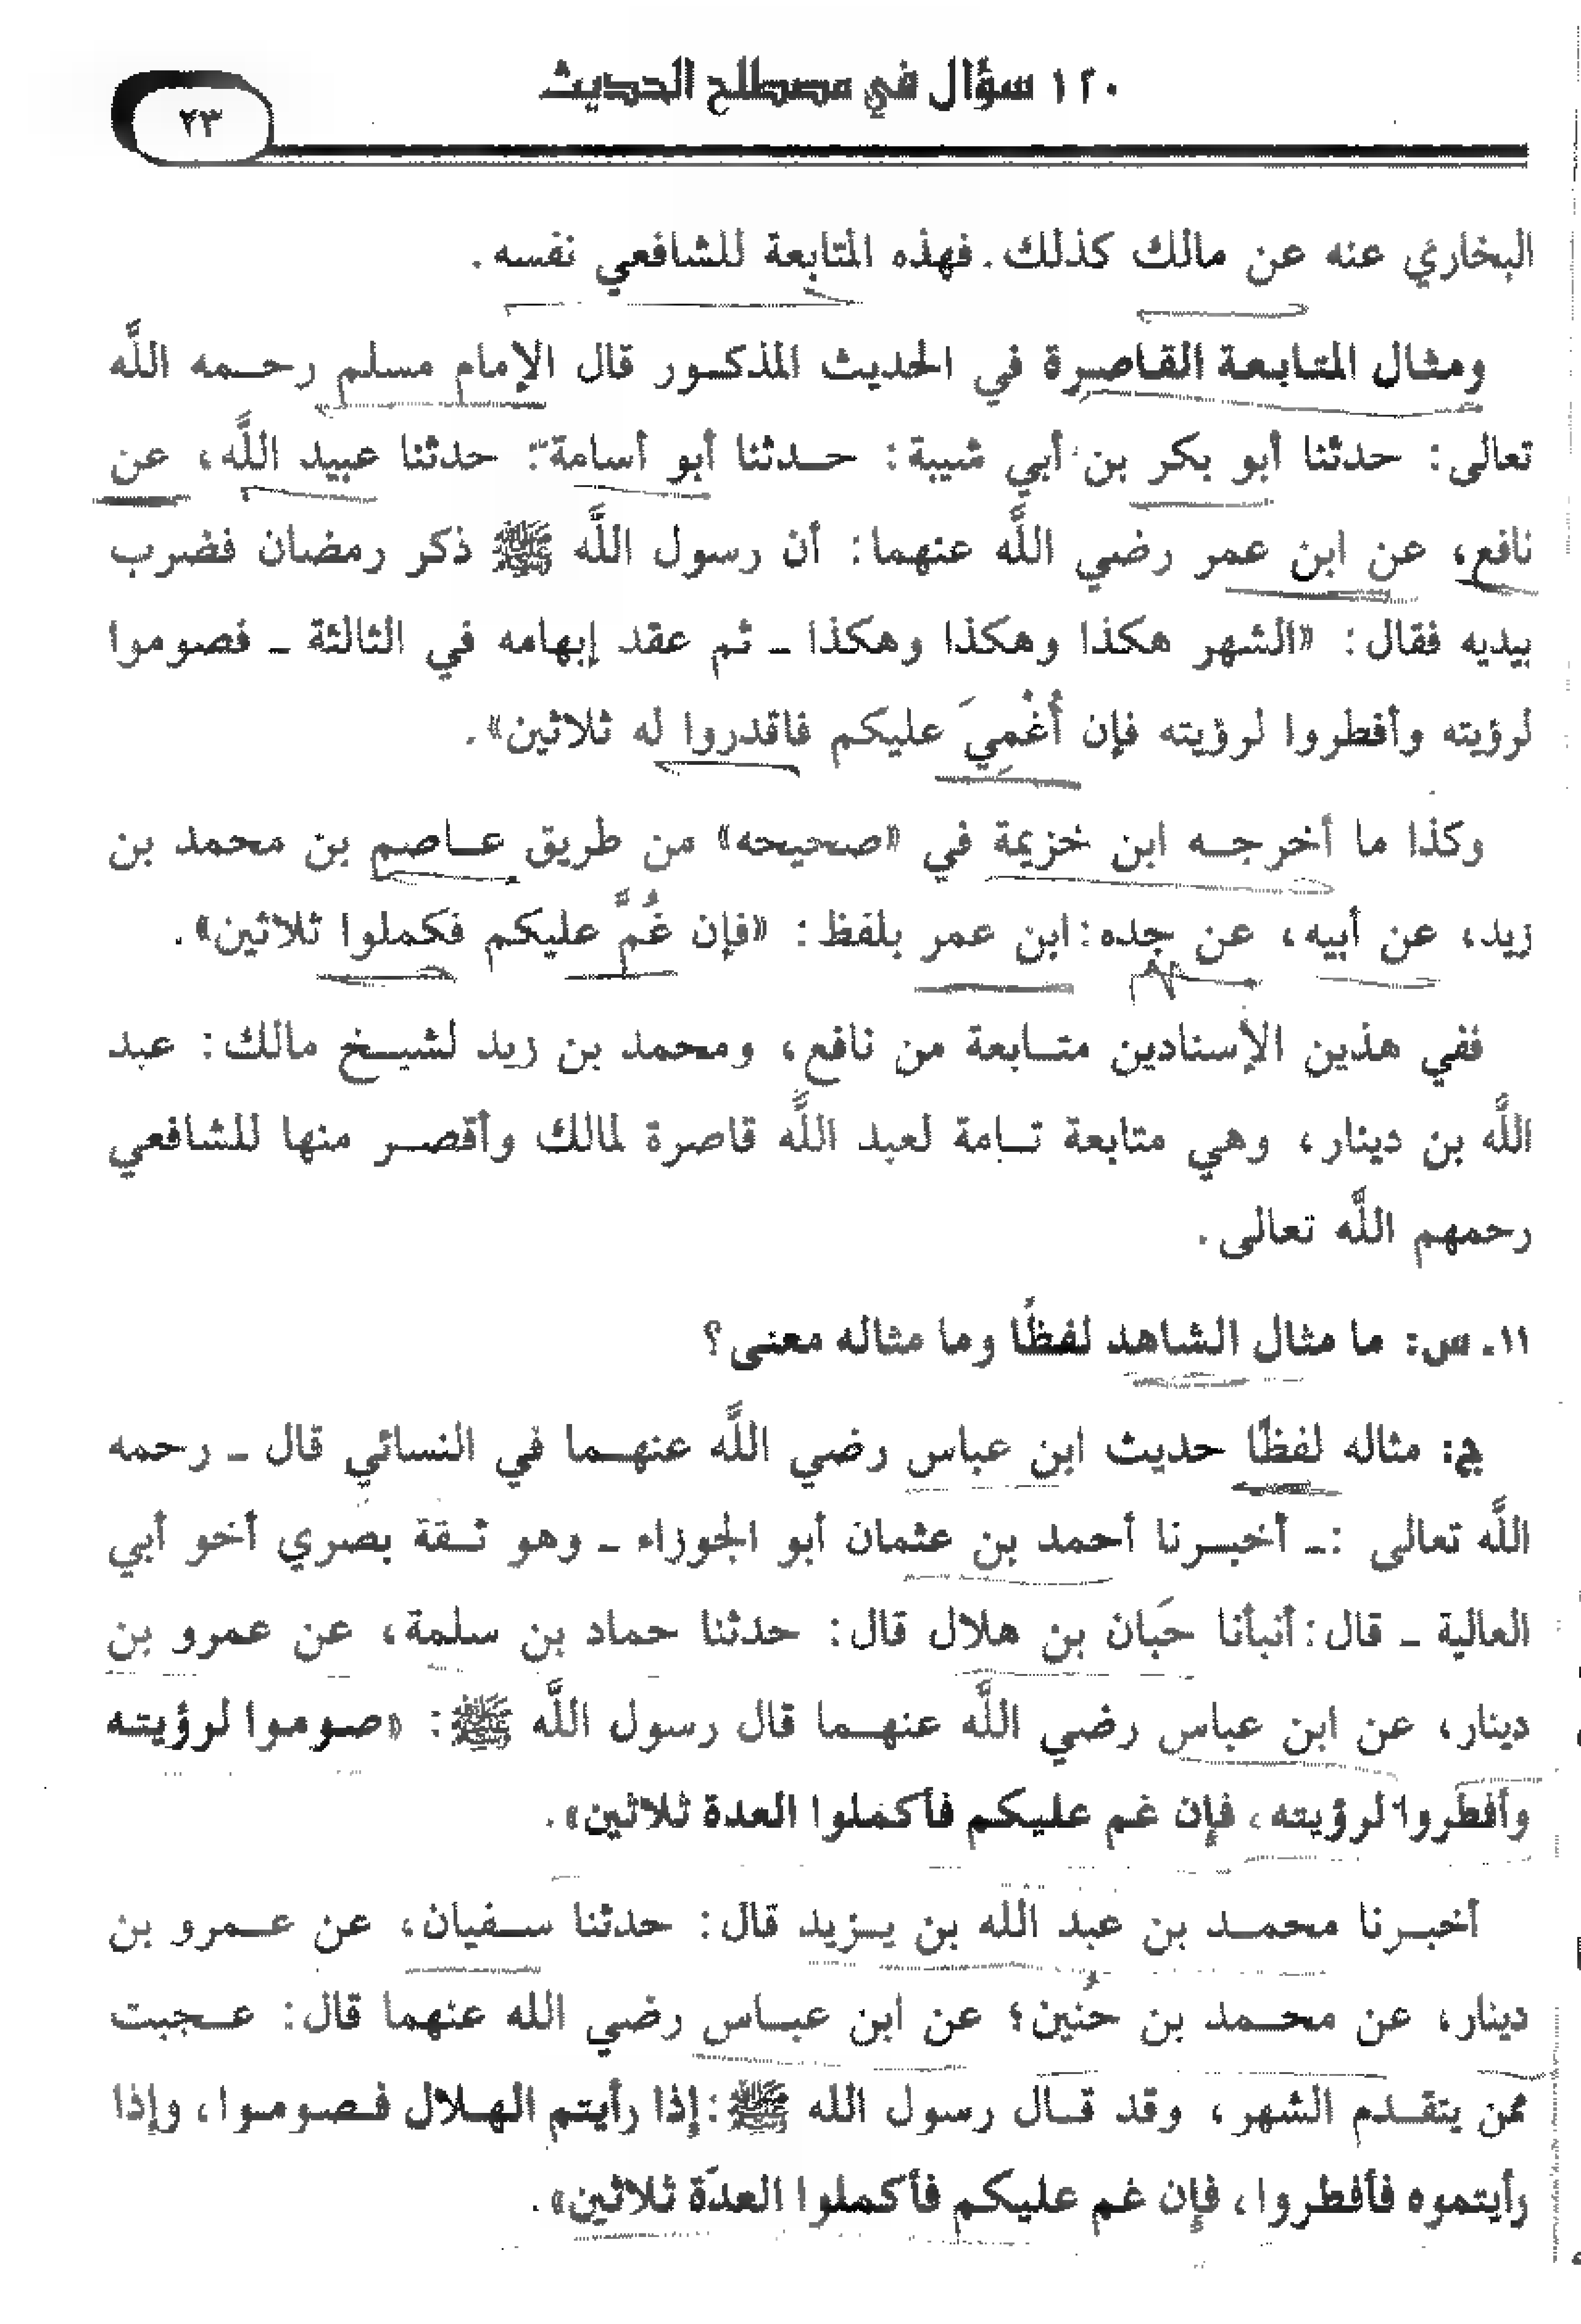 ١٢٠ سؤال في مصطلح الحديث
٢٣
البخاري عنه عن مالك كذلك. فهذه المتابعة للشافعي نفسه.
ومثال المتابعة القاصرة في الحديث المذكور قال الإمام مسلم رحمه اللَّه
تعالى: حدثنا أبو بكر بن أبي شيبة: حدثنا أبو أسامة: حدثنا عبيد اللَّه، عن
نافع، عن ابن عمر رضي اللَّه عنهما: أن رسول اللَّه ﷺ ذكر رمضان فضرب
بيديه فقال: «الشهر هكذا وهكذا وهكذا ـ ثم عقد إبهامه في الثالثة ـ فصوموا
لرؤيته وأفطروا لرؤيته فإن أُغْمِيَ عليكم فاقدروا له ثلاثين».
وكذا ما أخرجه ابن خزيمة في «صحيحه» من طريق عاصم بن محمد بن
زيد، عن أبيه، عن جده: ابن عمر بلفظ: «فإن غُمَّ عليكم فكملوا ثلاثين».
ففي هذين الإسنادين متابعة من نافع، ومحمد بن زيد لشيخ مالك: عبد
اللَّه بن دينار، وهي متابعة تامة لعبد اللَّه قاصرة لمالك وأقصر منها للشافعي
رحمهم اللَّه تعالى.
١١ـ س: ما مثال الشاهد لفظًا وما مثاله معنى؟
ج: مثاله لفظًا حديث ابن عباس رضي اللَّه عنهما في النسائي قال ـ رحمه
اللَّه تعالى ـ: أخبرنا أحمد بن عثمان أبو الجوزاء ـ وهو ثقة بصري أخو أبي
العالية ـ قال: أنبأنا حَبان بن هلال قال: حدثنا حماد بن سلمة، عن عمرو بن
دينار، عن ابن عباس رضي اللَّه عنهما قال رسول اللَّه ﷺ: «صوموا لرؤيته
وأفطروا لرؤيته، فإن غم عليكم فأكملوا العدة ثلاثين».
أخبرنا محمد بن عبد الله بن يزيد قال: حدثنا سفيان، عن عمرو بن
دينار، عن محمد بن حُنين؛ عن ابن عباس رضي الله عنهما قال: عجبت
ممن يتقدم الشهر، وقد قال رسول الله ﷺ: إذا رأيتم الهلال فصوموا، وإذا
رأيتموه فأفطروا، فإن غم عليكم فأكملوا العدّة ثلاثين».